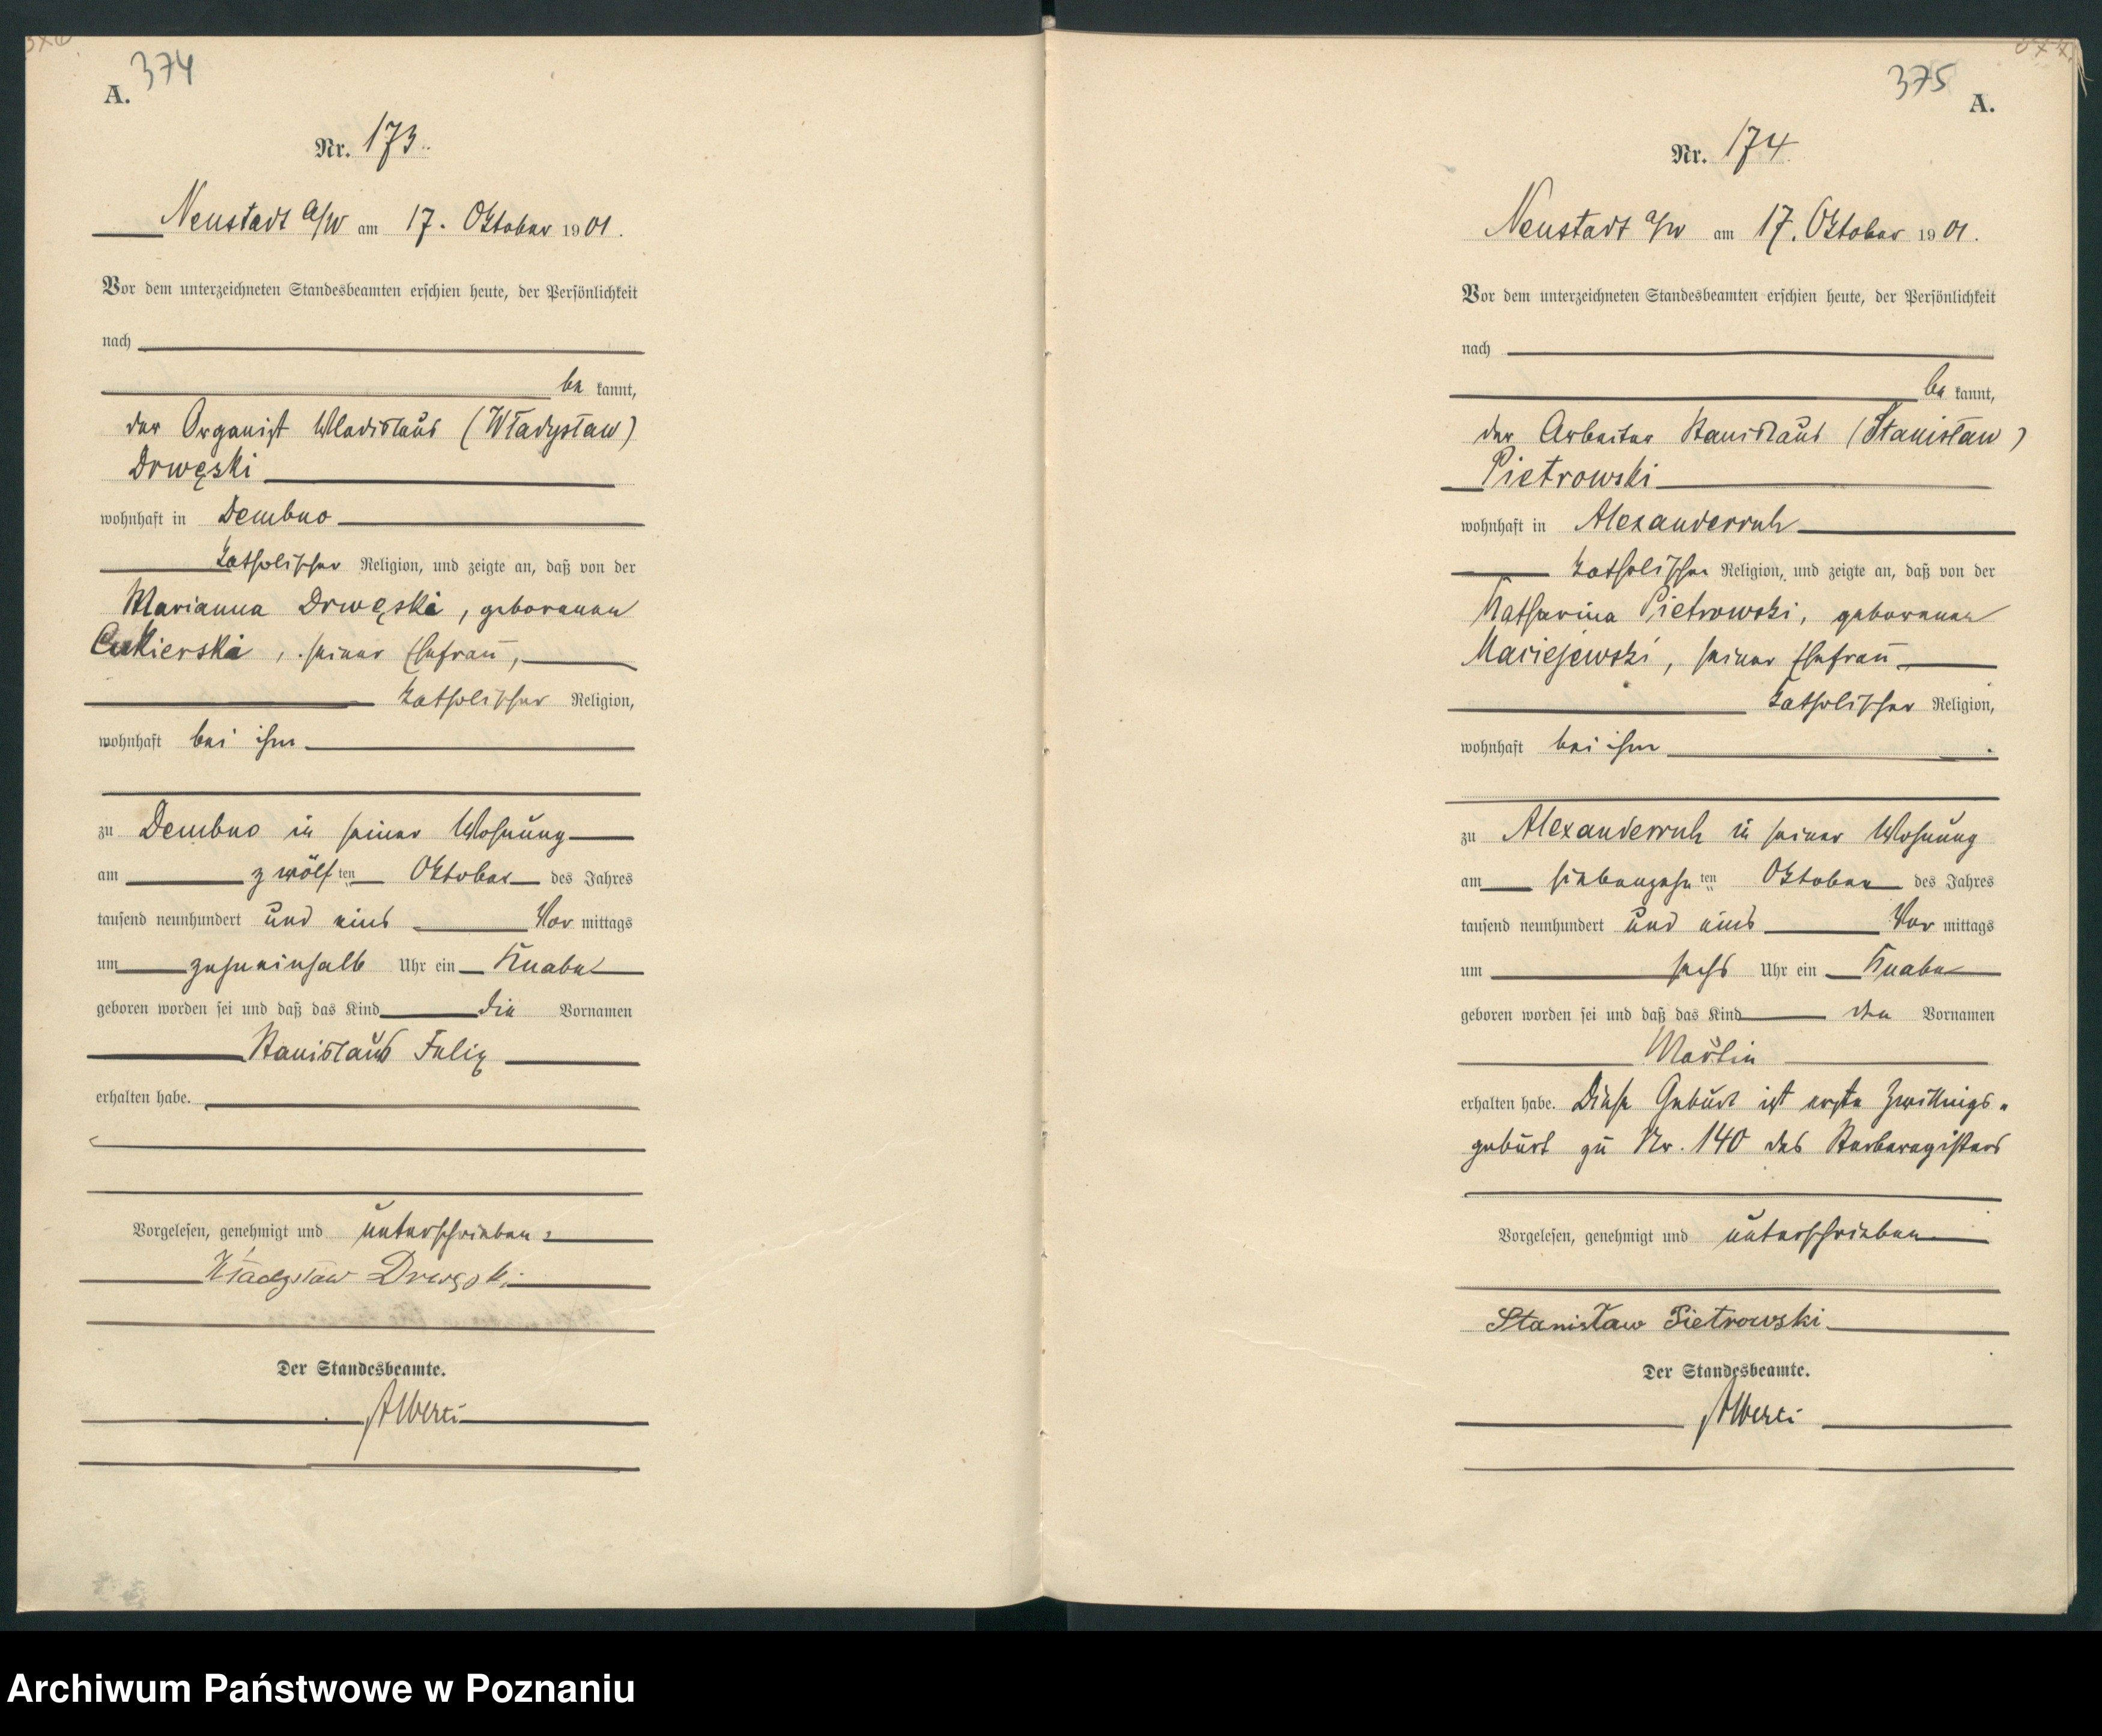 374
A.
Nr. 173.
Neustadt a/W am 17. Oktober 1901.
Vor dem unterzeichneten Standesbeamten erschien heute, der Persönlichkeit
nach
be kannt,
der Organist Wladislaus (Władysław)
Drwęski
wohnhaft in Dembno
katholischer Religion, und zeigte an, daß von der
Marianna Drwęski, geborenen
Cukierski, seiner Ehefrau,
katholischer Religion,
wohnhaft bei ihm
zu Dembno in seiner Wohnung
am zwölf ten Oktober des Jahres
tausend neunhundert und eins Vor mittags
um zehneinhalb Uhr ein Knabe
geboren worden sei und daß das Kind die Vornamen
Stanislaus Felix
erhalten habe.
Vorgelesen, genehmigt und unterschrieben:
Władysław Drwęski
Der Standesbeamte.
Alberti
375
A.
Nr. 174.
Neustadt a/W am 17. Oktober 1901.
Vor dem unterzeichneten Standesbeamten erschien heute, der Persönlichkeit
nach
be kannt,
der Arbeiter Stanislaus (Stanisław)
Pietrowski
wohnhaft in Alexanderruh
katholischer Religion, und zeigte an, daß von der
Katharina Pietrowski, geborenen
Maciejewski, seiner Ehefrau
katholischer Religion,
wohnhaft bei ihm
zu Alexanderruh in seiner Wohnung
am siebenzehn ten Oktober des Jahres
tausend neunhundert und eins Vor mittags
um sechs Uhr ein Knabe
geboren worden sei und daß das Kind den Vornamen
Martin
erhalten habe. Diese Geburt ist erste Zwillings-
geburt zu Nr. 140 des Sterberegisters
Vorgelesen, genehmigt und unterschrieben
Stanisław Pietrowski
Der Standesbeamte.
Alberti
Archiwum Państwowe w Poznaniu